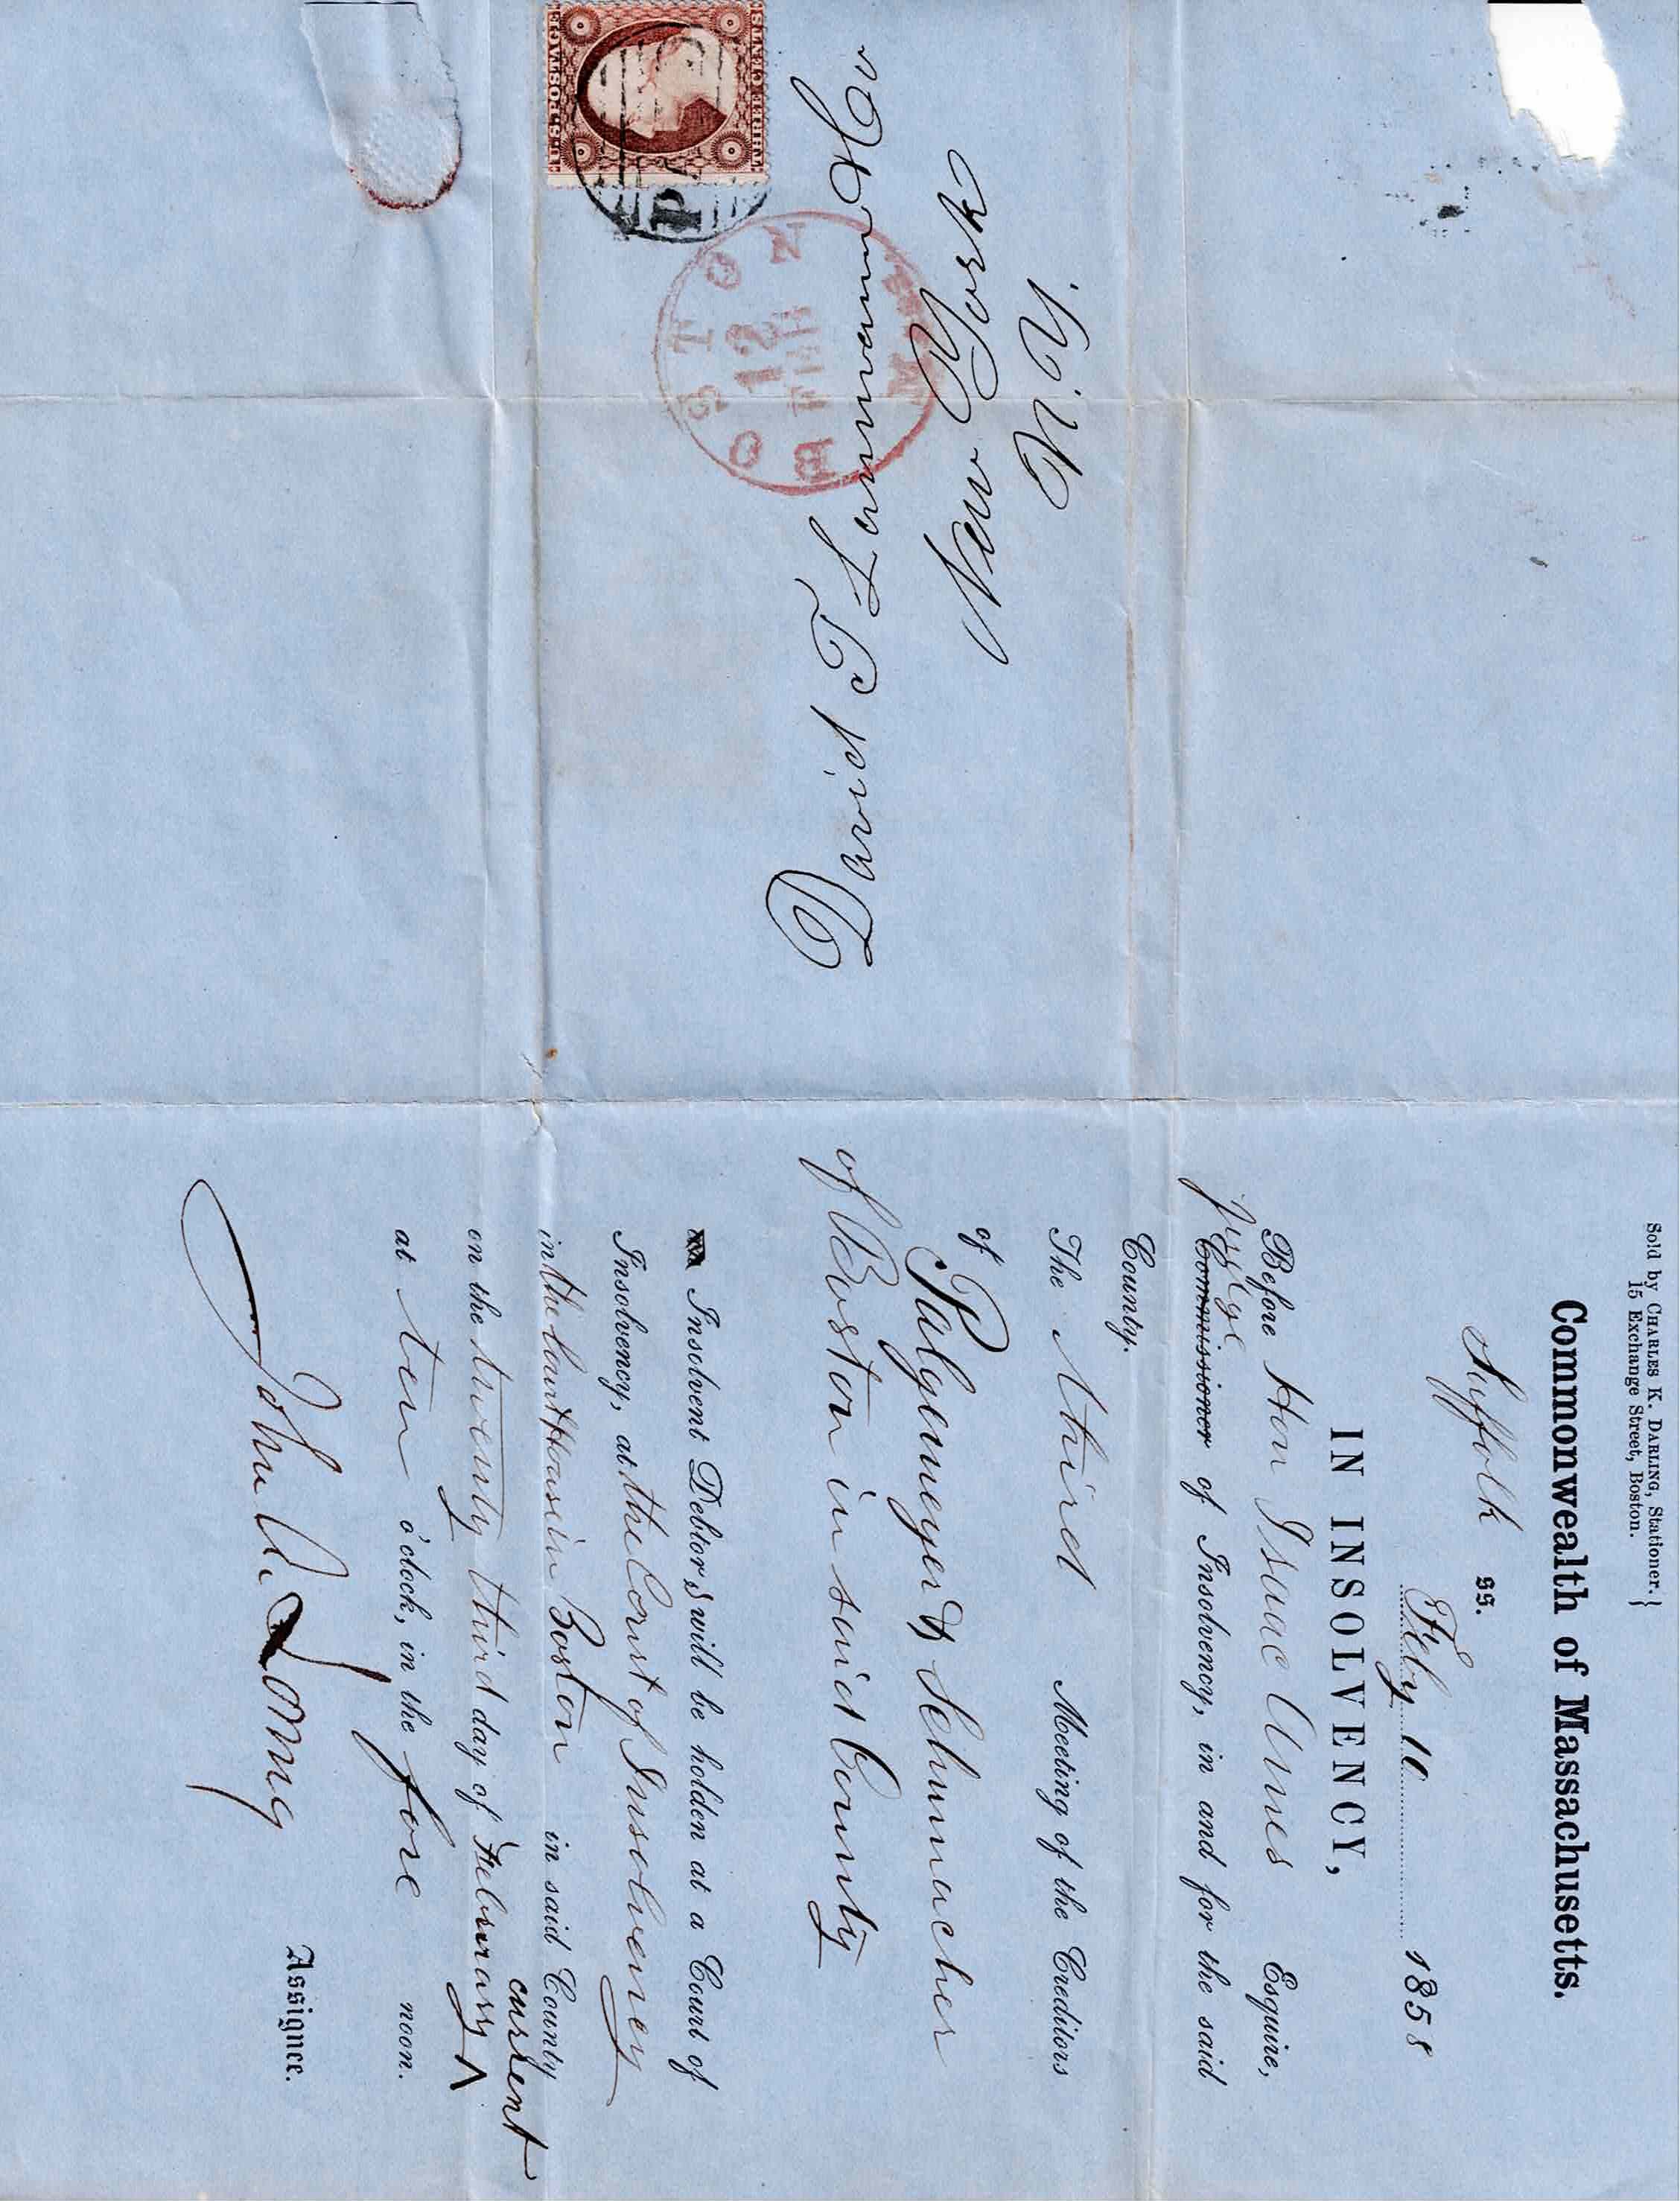 Sold by CHARLES K. DARLING, Stationer. }
15 Exchange Street, Boston.
Commonwealth of Massachusetts.
Suffolk ss.
Feby 10 1858
IN INSOLVENCY,
Before Hon Isaac Ames Esquire,
judge
Commissioner of Insolvency, in and for the said
County.
The third Meeting of the Creditors
of Palgemeyer & Schumacher
of Boston in said County
Insolvent Debtors will be holden at a Court of
Insolvency, at the Court of Insolvency
in the Court House in Boston in said County
current
on the twenty third day of February ^
at ten o'clock, in the fore noon.
John A. Loring
Assignee.
U.S. POSTAGE
THREE CENTS
PAID
BOSTON
MASS.
12
FEB
David T Lanman & Co
New York
N.Y.